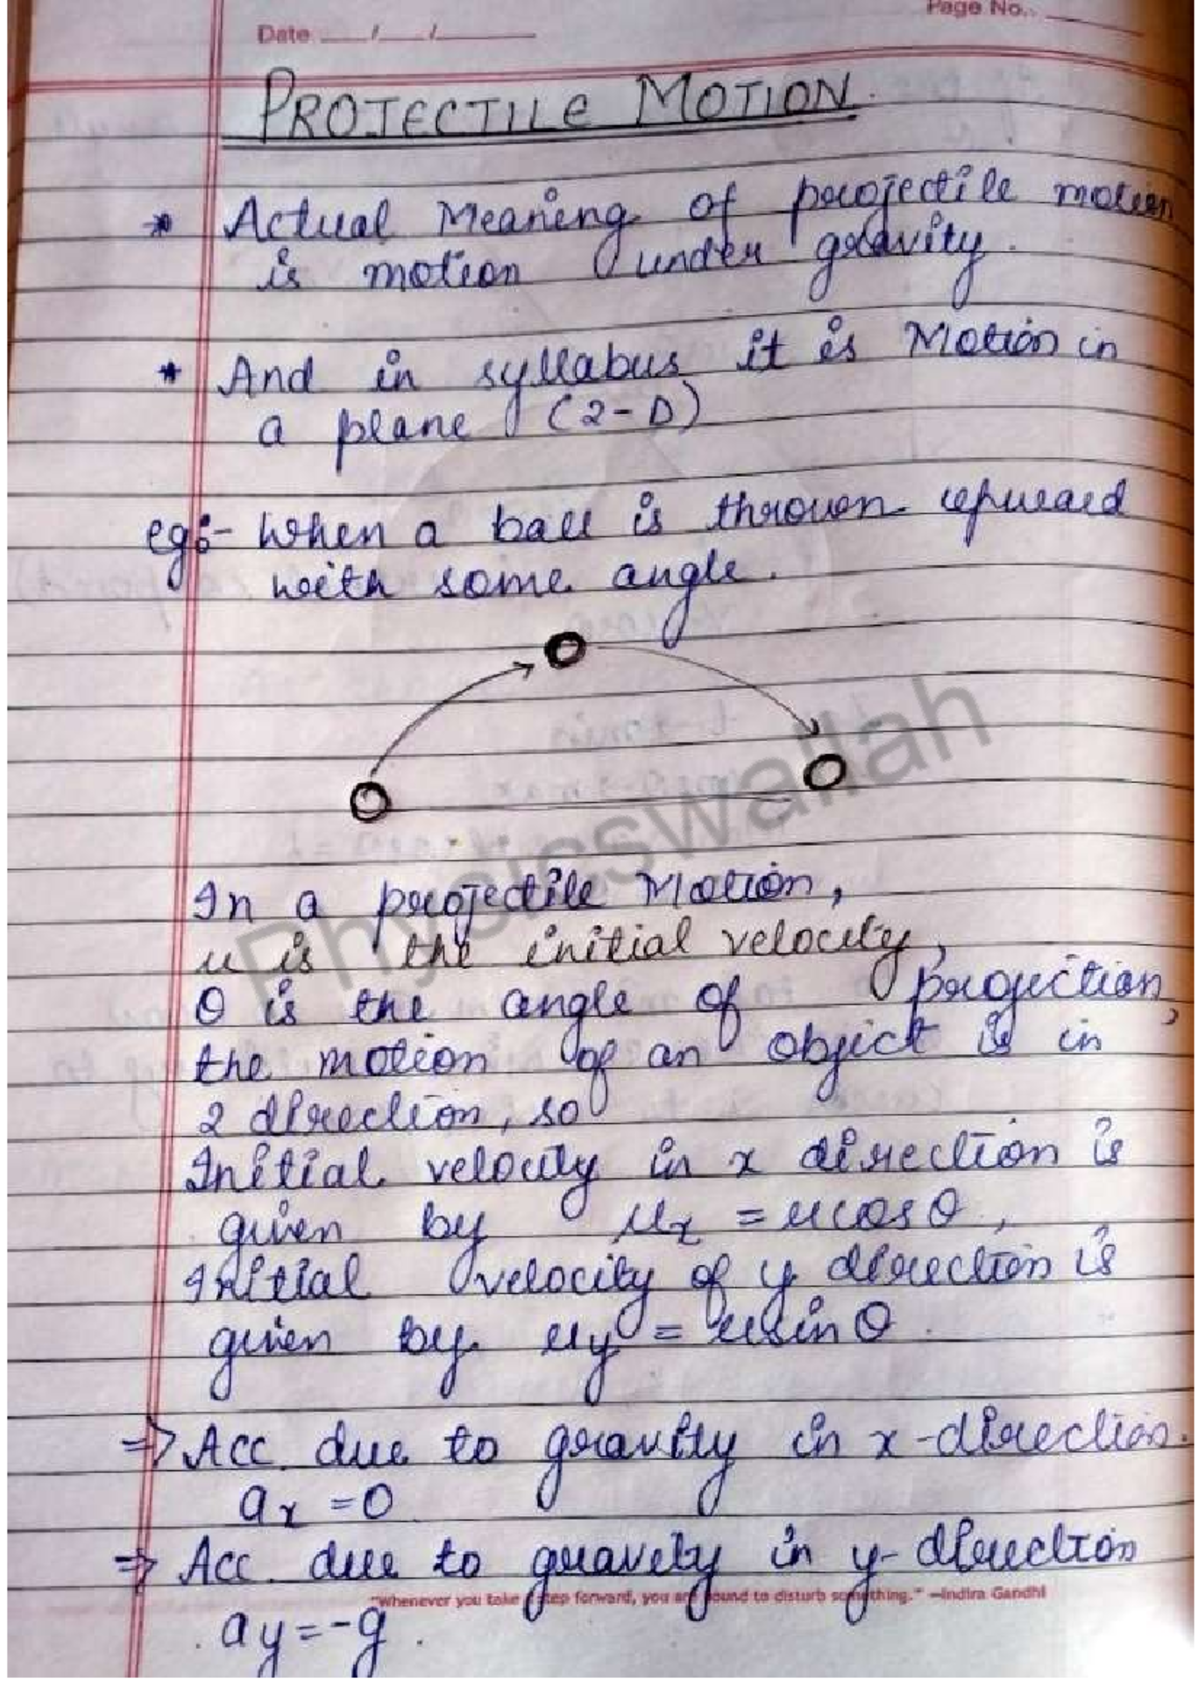 Page No.
Date / /
PROJECTILE MOTION.
* Actual Meaning of projectile motion
is motion under gravity.
* And in syllabus it is Motion in
a plane (2-D)
eg:- When a ball is thrown upward
with some angle.
Physicswallah
In a projectile Motion,
u is the initial velocity,
θ is the angle of projection,
the motion of an object is in
2 direction, so
Initial velocity in x direction is
given by ux = ucosθ,
Initial velocity of y direction is
given by uy = usinθ.
⇒ Acc. due to gravity in x-direction.
ax = 0
⇒ Acc. due to gravity in y-direction
"Whenever you take a step forward, you are bound to disturb something." —Indira Gandhi
ay = -g.